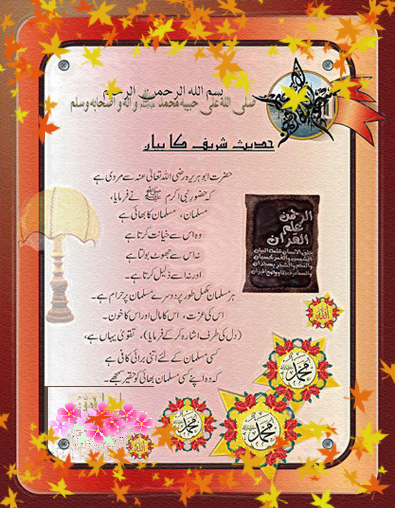 بسم الله الرحمن الرحیم
صلی الله علی حبیبه محمد ﷺ و آله و اصحابه وسلم
حدیث شریف کا بیان
حضرت ابو ہریرہ رضی اللہ تعالیٰ عنہ سے مروی ہے
کہ حضور نبی اکرم ﷺ نے فرمایا،
مسلمان، مسلمان کا بھائی ہے
وہ اس سے خیانت کرتا ہے
نہ اس سے جھوٹ بولتا ہے
اور نہ اسے ذلیل کرتا ہے۔
ہر مسلمان مکمل طور پر دوسرے مسلمان پر حرام ہے۔
اس کی عزت، اس کا مال اور اس کا خون۔
(دل کی طرف اشارہ کر کے فرمایا)، تقویٰ یہاں ہے،
کسی مسلمان کے لئے اتنی برائی کافی ہے
کہ وہ اپنے کسی مسلمان بھائی کو حقیر سمجھے۔
الرحمن
علم
القرآن
الله
محمد
محمد
محمد
الله